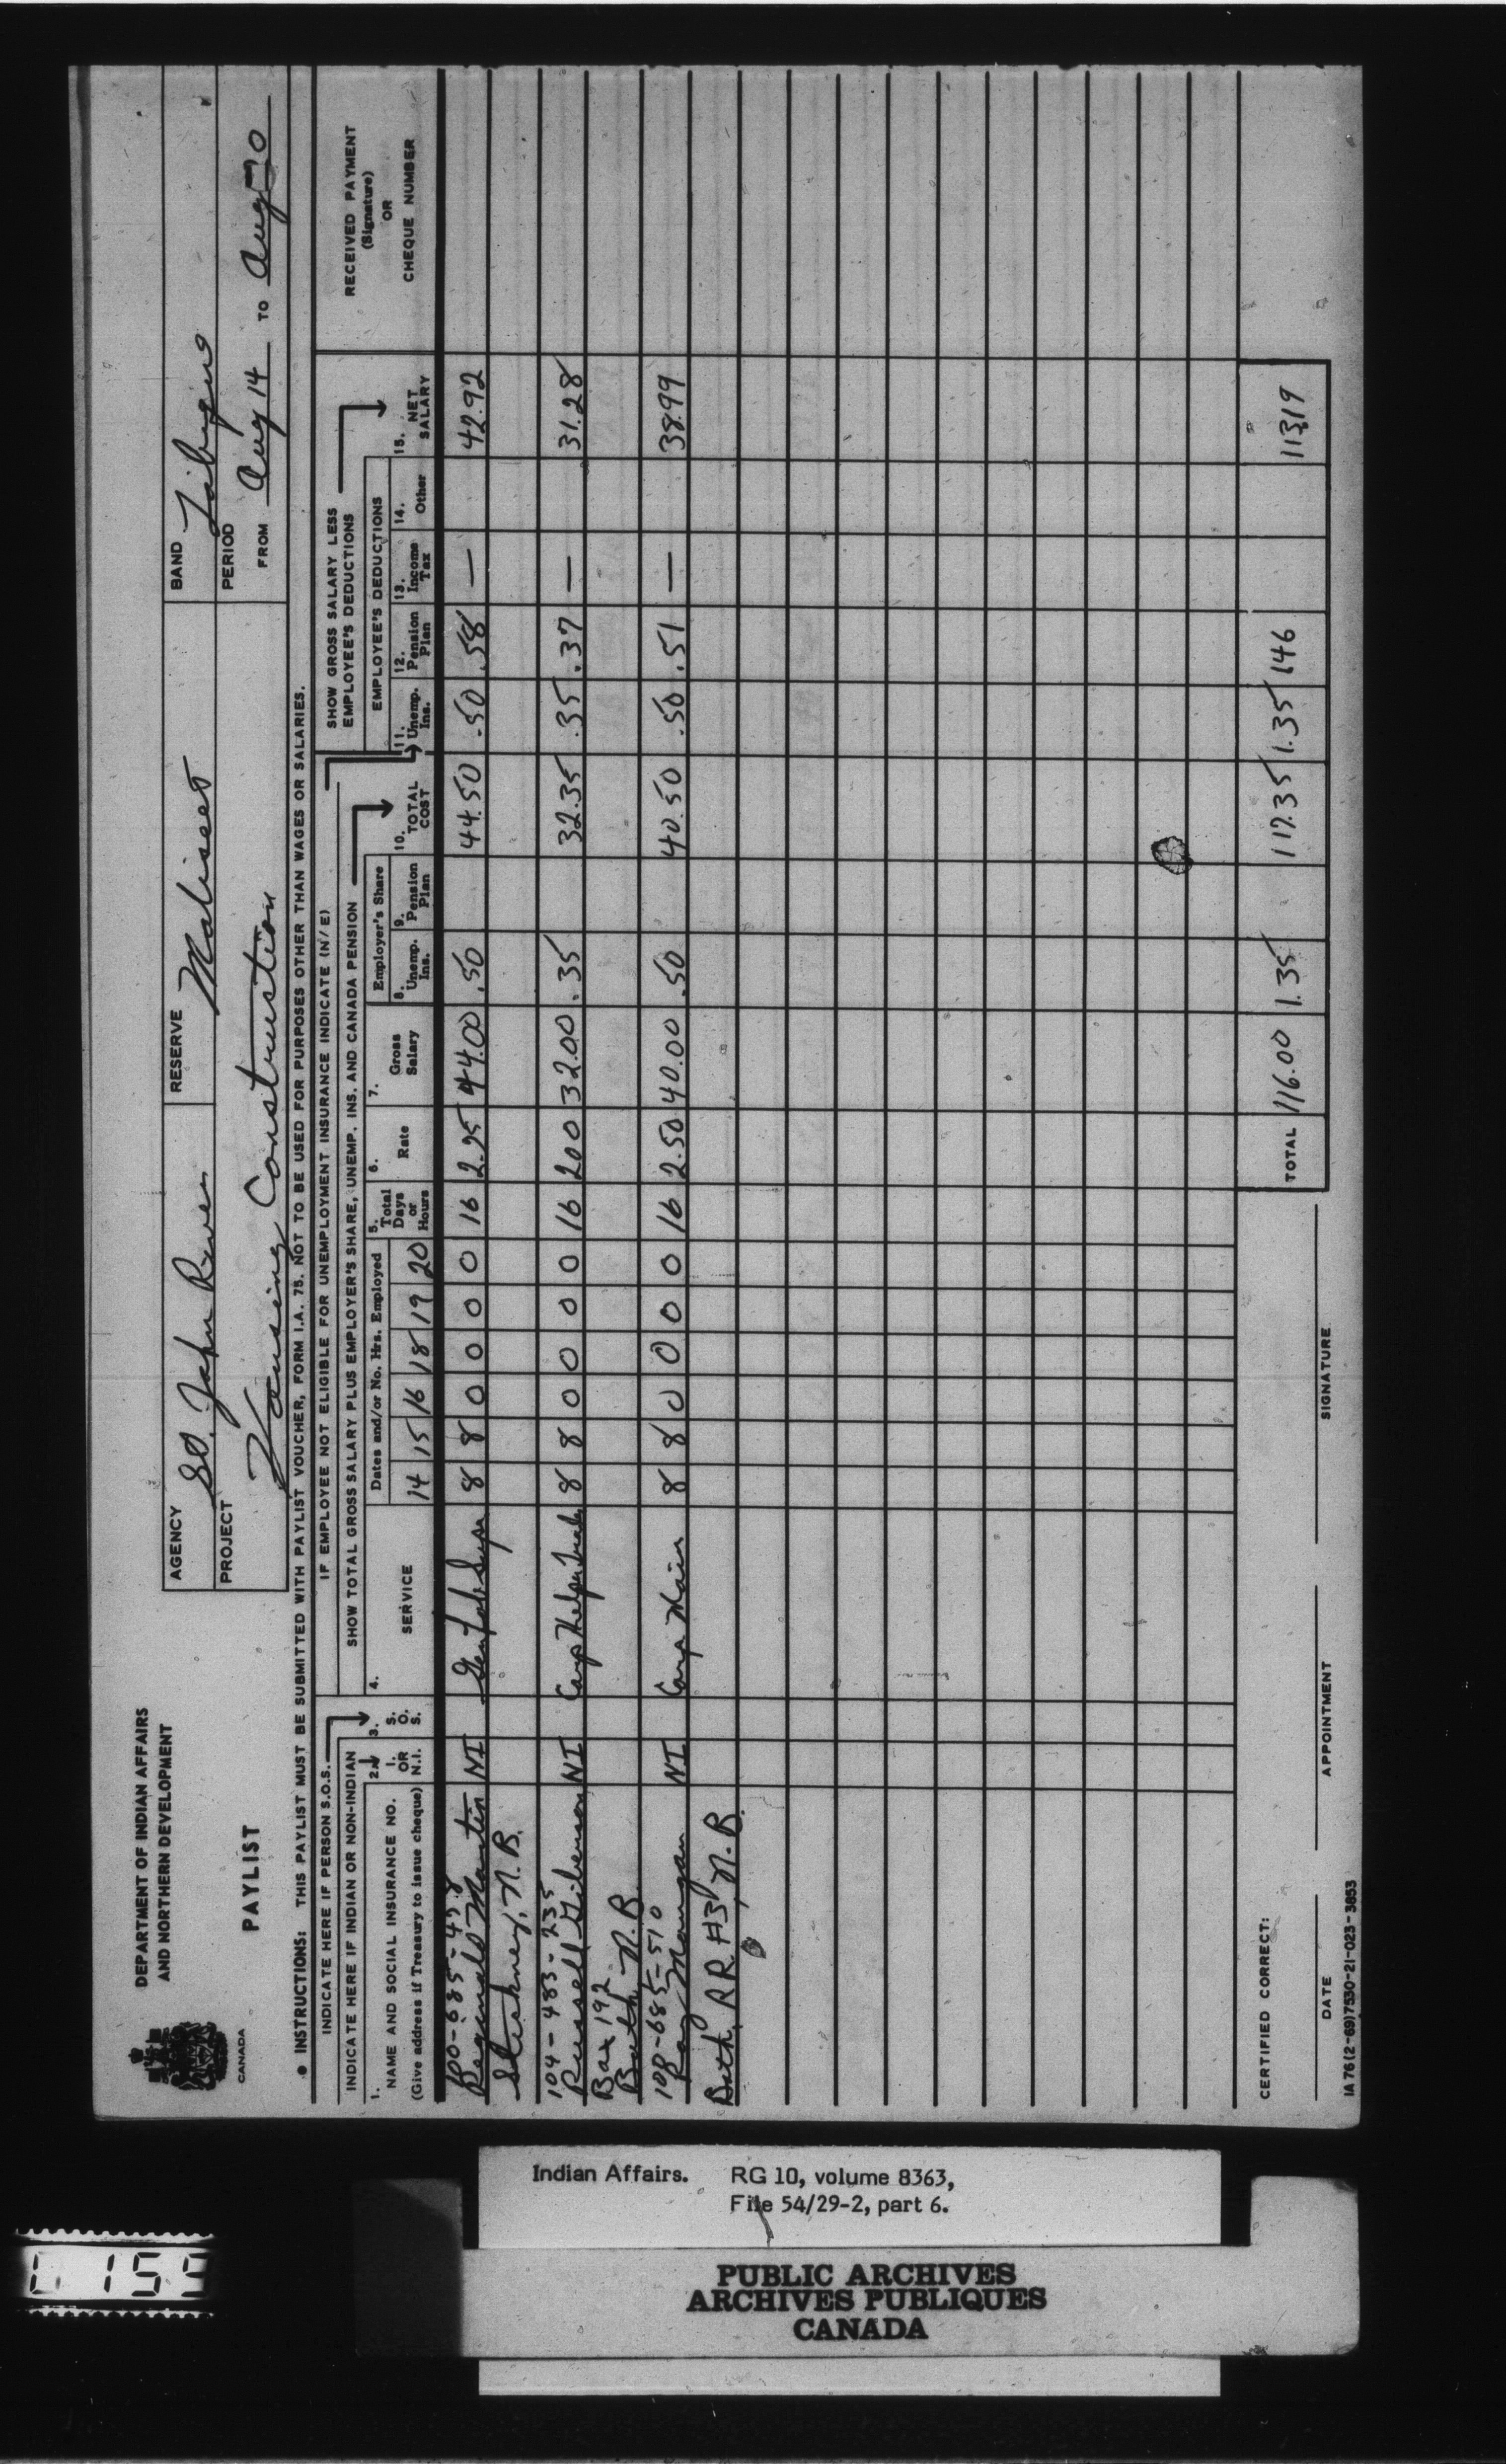 DEPARTMENT OF INDIAN AFFAIRS
AND NORTHERN DEVELOPMENT
CANADA
PAYLIST
AGENCY St. John River
RESERVE Maliseet
BAND Tobique
PROJECT Housing Construction
PERIOD
FROM Aug 14 TO Aug 20
• INSTRUCTIONS: THIS PAYLIST MUST BE SUBMITTED WITH PAYLIST VOUCHER, FORM I.A. 75. NOT TO BE USED FOR PURPOSES OTHER THAN WAGES OR SALARIES.
INDICATE HERE IF PERSON S.O.S.
IF EMPLOYEE NOT ELIGIBLE FOR UNEMPLOYMENT INSURANCE INDICATE (N/E)
SHOW GROSS SALARY LESS
EMPLOYEE'S DEDUCTIONS
INDICATE HERE IF INDIAN OR NON-INDIAN
SHOW TOTAL GROSS SALARY PLUS EMPLOYER'S SHARE, UNEMP. INS. AND CANADA PENSION
RECEIVED PAYMENT
(Signature)
OR
CHEQUE NUMBER
1. NAME AND SOCIAL INSURANCE NO.
(Give address if Treasury to issue cheque)
2. I. OR N.I.
3. S. O. S.
4. SERVICE
Dates and/or No. Hrs. Employed
14 15 16 18 19 20
5. Total Days or Hours
6. Rate
7. Gross Salary
Employer's Share
8. Unemp. Ins.
9. Pension Plan
10. TOTAL COST
EMPLOYEE'S DEDUCTIONS
11. Unemp. Ins.
12. Pension Plan
13. Income Tax
14. Other
15. NET SALARY
Reginald Martin NI 8 8 0 0 0 0 16 2.95 44.00 .50 44.50 .50 .58 — 42.92
N.B.
104-483-235
Russell Giberson NI Carp Helper 8 8 0 0 0 0 16 200 32.00 .35 32.35 .35 .37 — 31.28
Box 192
Bath N.B.
100-685-510
Ray Mangan NI Carp Main 8 8 0 0 0 0 16 2.50 40.00 .50 40.50 .50 .51 — 38.99
Bath, RR #3, N.B.
TOTAL 116.00 1.35 117.35 1.35 146 11319
CERTIFIED CORRECT:
DATE
APPOINTMENT
SIGNATURE
IA 76 (2-69) 7530-21-023-3853
Indian Affairs. RG 10, volume 8363,
File 54/29-2, part 6.
PUBLIC ARCHIVES
ARCHIVES PUBLIQUES
CANADA